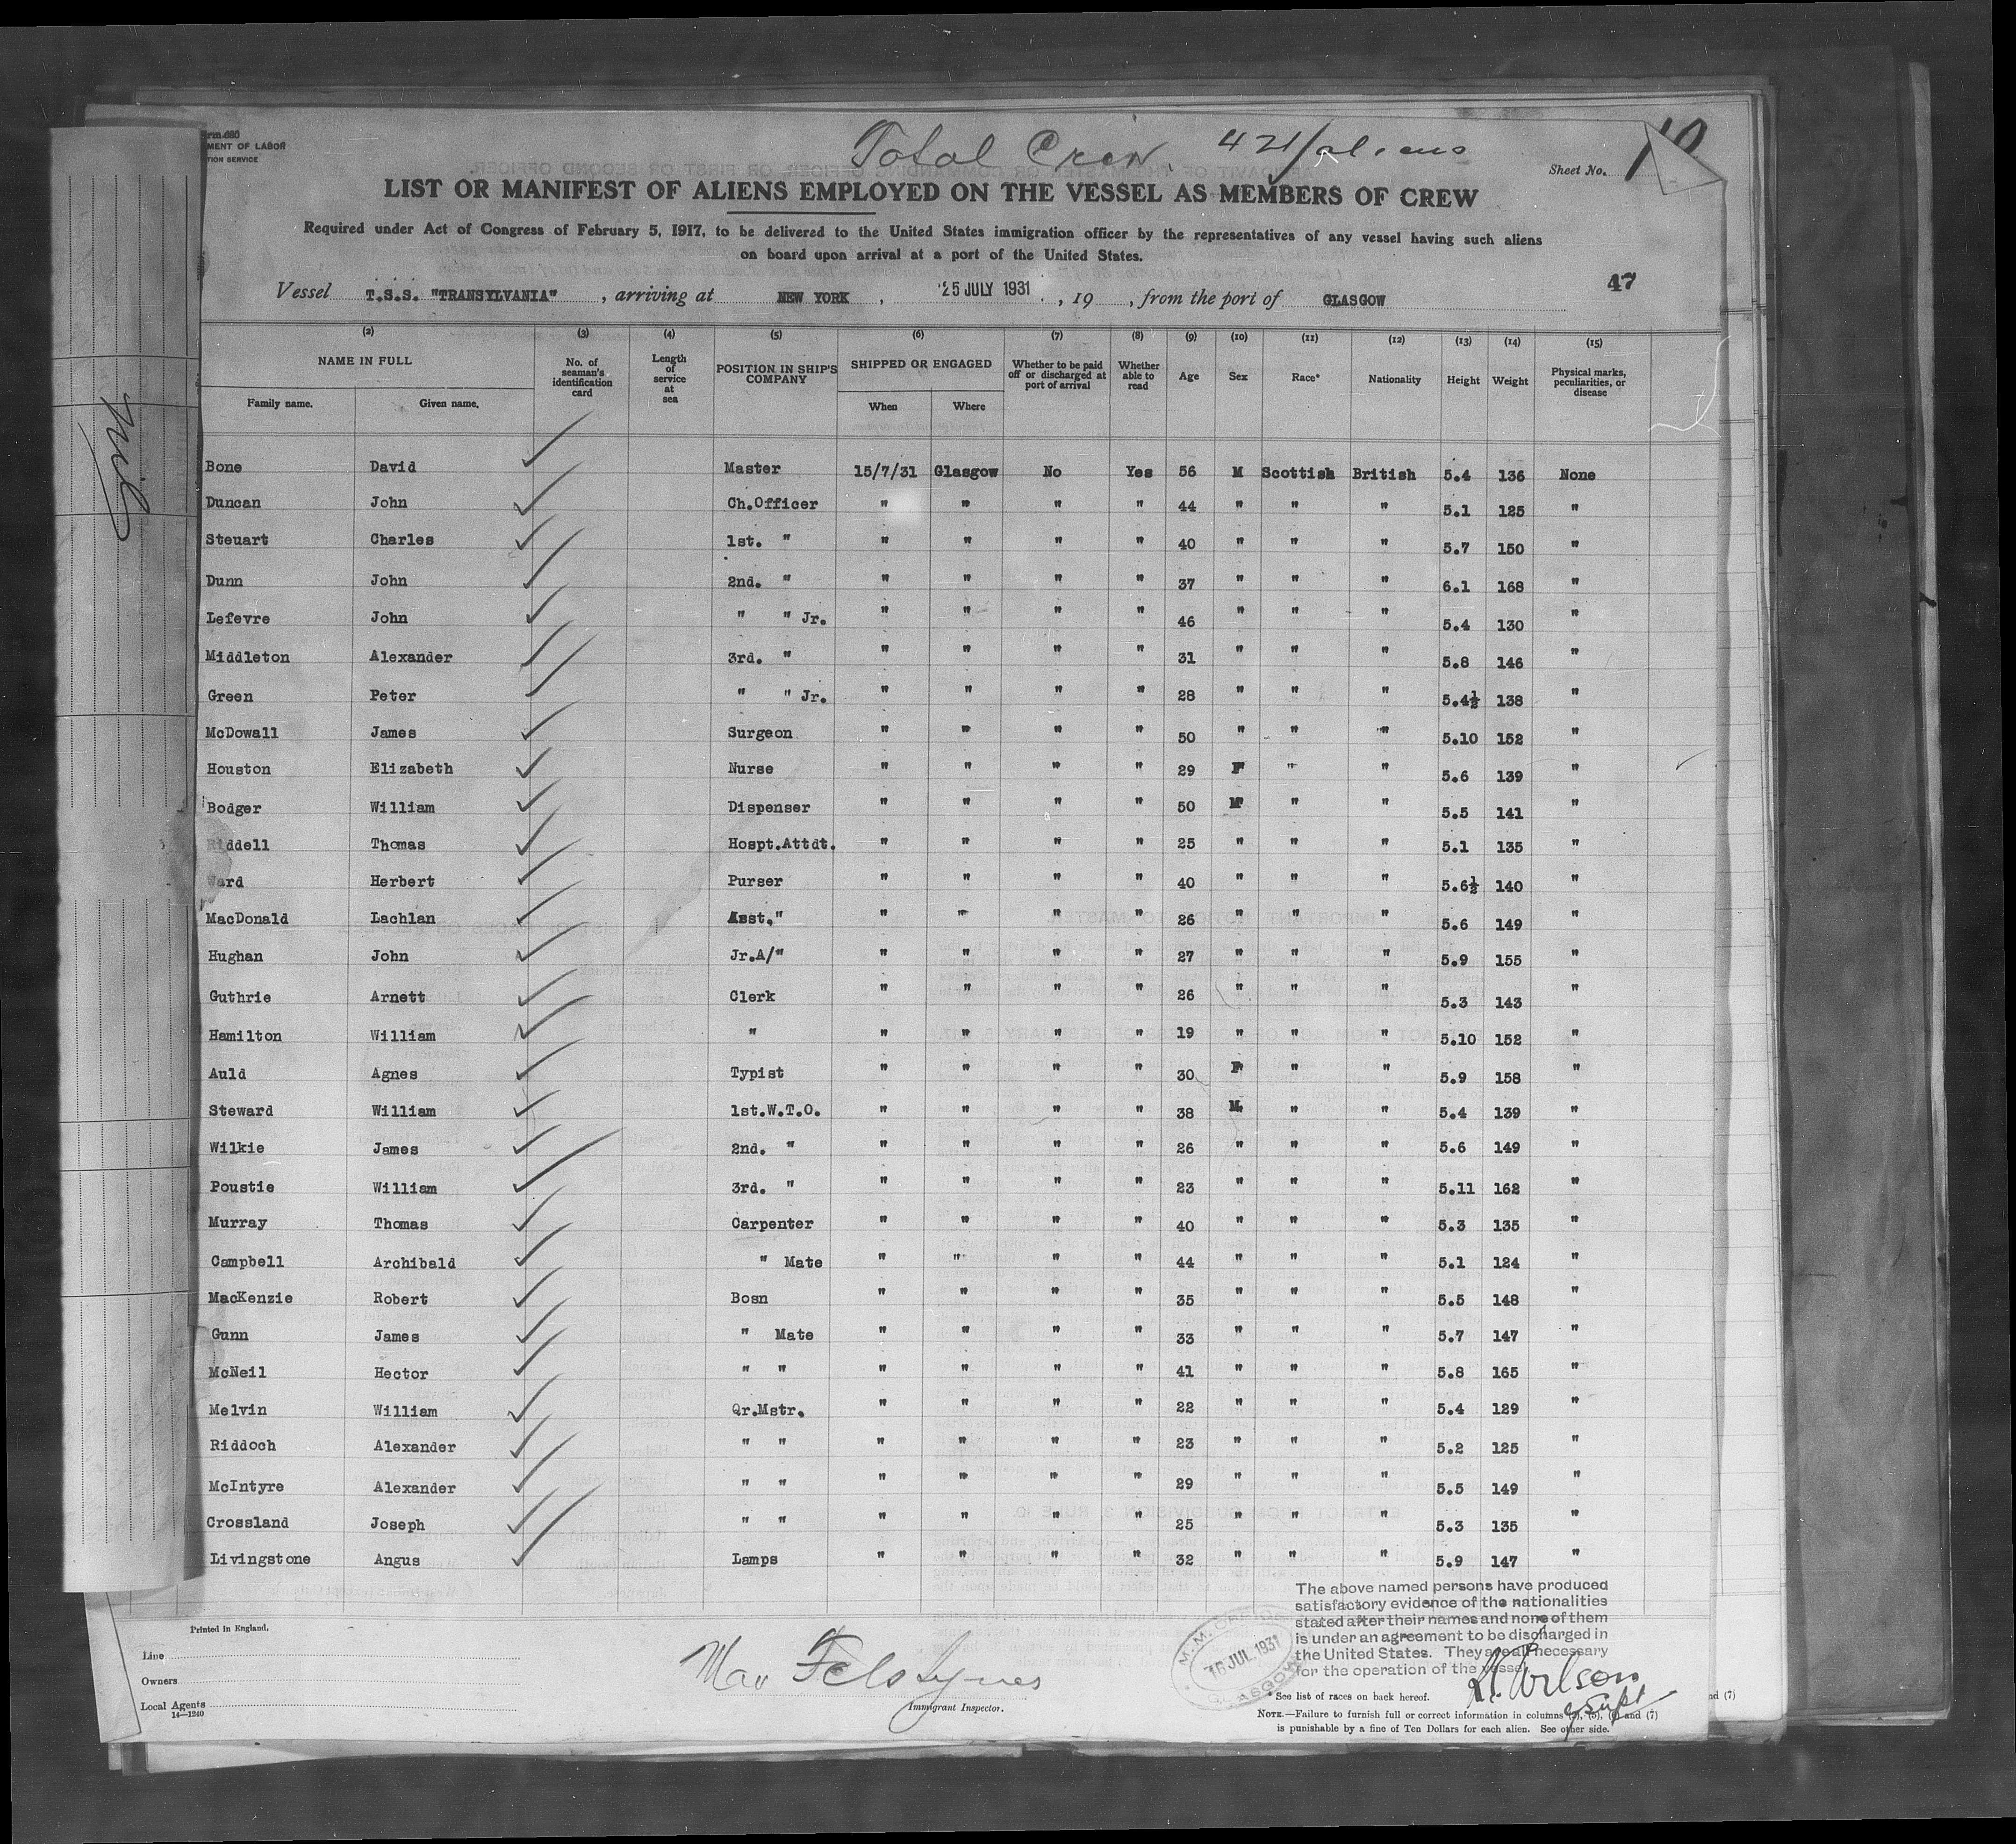 Form 680
MENT OF LABOR
TION SERVICE
Total Crew. 421/aliens
Sheet No.
LIST OR MANIFEST OF ALIENS EMPLOYED ON THE VESSEL AS MEMBERS OF CREW
Required under Act of Congress of February 5, 1917, to be delivered to the United States immigration officer by the representatives of any vessel having such aliens
on board upon arrival at a port of the United States.
47
Vessel T.S.S. "TRANSYLVANIA", arriving at NEW YORK, 25 JULY 1931, 19, from the port of GLASGOW
(2) (3) (4) (5) (6) (7) (8) (9) (10) (11) (12) (13) (14) (15)
NAME IN FULL No. of seaman's identification card Length of service at sea POSITION IN SHIP'S COMPANY SHIPPED OR ENGAGED Whether to be paid off or discharged at port of arrival Whether able to read Age Sex Race* Nationality Height Weight Physical marks, peculiarities, or disease
Family name. Given name. When Where
Bone David Master 15/7/31 Glasgow No Yes 56 M Scottish British 5.4 136 None
Duncan John Ch.Officer " " " " 44 " " " 5.1 125 "
Steuart Charles 1st. " " " " " 40 " " " 5.7 150 "
Dunn John 2nd. " " " " " 37 " " " 6.1 168 "
Lefevre John " " Jr. " " " " 46 " " " 5.4 130 "
Middleton Alexander 3rd. " " " " " 31 " " " 5.8 146 "
Green Peter " " Jr. " " " " 28 " " " 5.4½ 138 "
McDowall James Surgeon " " " " 50 " " " 5.10 152 "
Houston Elizabeth Nurse " " " " 29 F " " 5.6 139 "
Bodger William Dispenser " " " " 50 M " " 5.5 141 "
Riddell Thomas Hospt.Attdt. " " " " 25 " " " 5.1 135 "
Ward Herbert Purser " " " " 40 " " " 5.6½ 140 "
MacDonald Lachlan Asst." " " " " 26 " " " 5.6 149 "
Hughan John Jr.A/" " " " " 27 " " " 5.9 155 "
Guthrie Arnett Clerk " " " " 26 " " " 5.3 143 "
Hamilton William " " " " " 19 " " " 5.10 152 "
Auld Agnes Typist " " " " 30 F " " 5.9 158 "
Steward William 1st.W.T.O. " " " " 38 M " " 5.4 139 "
Wilkie James 2nd. " " " " " 26 " " " 5.6 149 "
Poustie William 3rd. " " " " " 23 " " " 5.11 162 "
Murray Thomas Carpenter " " " " 40 " " " 5.3 135 "
Campbell Archibald " Mate " " " " 44 " " " 5.1 124 "
MacKenzie Robert Bosn " " " " 35 " " " 5.5 148 "
Gunn James " Mate " " " " 33 " " " 5.7 147 "
McNeil Hector " " " " " " 41 " " " 5.8 165 "
Melvin William Qr.Mstr. " " " " 22 " " " 5.4 129 "
Riddoch Alexander " " " " " " 23 " " " 5.2 125 "
McIntyre Alexander " " " " " " 29 " " " 5.5 149 "
Crossland Joseph " " " " " " 25 " " " 5.3 135 "
Livingstone Angus Lamps " " " " 32 " " " 5.9 147 "
The above named persons have produced
satisfactory evidence of the nationalities
stated after their names and none of them
is under an agreement to be discharged in
the United States. They are all necessary
for the operation of the vessel
M.M. OFFICE
16 JUL 1931
GLASGOW
Printed in England.
Line
Owners
Local Agents
14—1240
Immigrant Inspector.
Wilson
Supt
* See list of races on back hereof.
NOTE.—Failure to furnish full or correct information in columns (2), (5), (6) and (7)
is punishable by a fine of Ten Dollars for each alien. See other side.
nd (7)